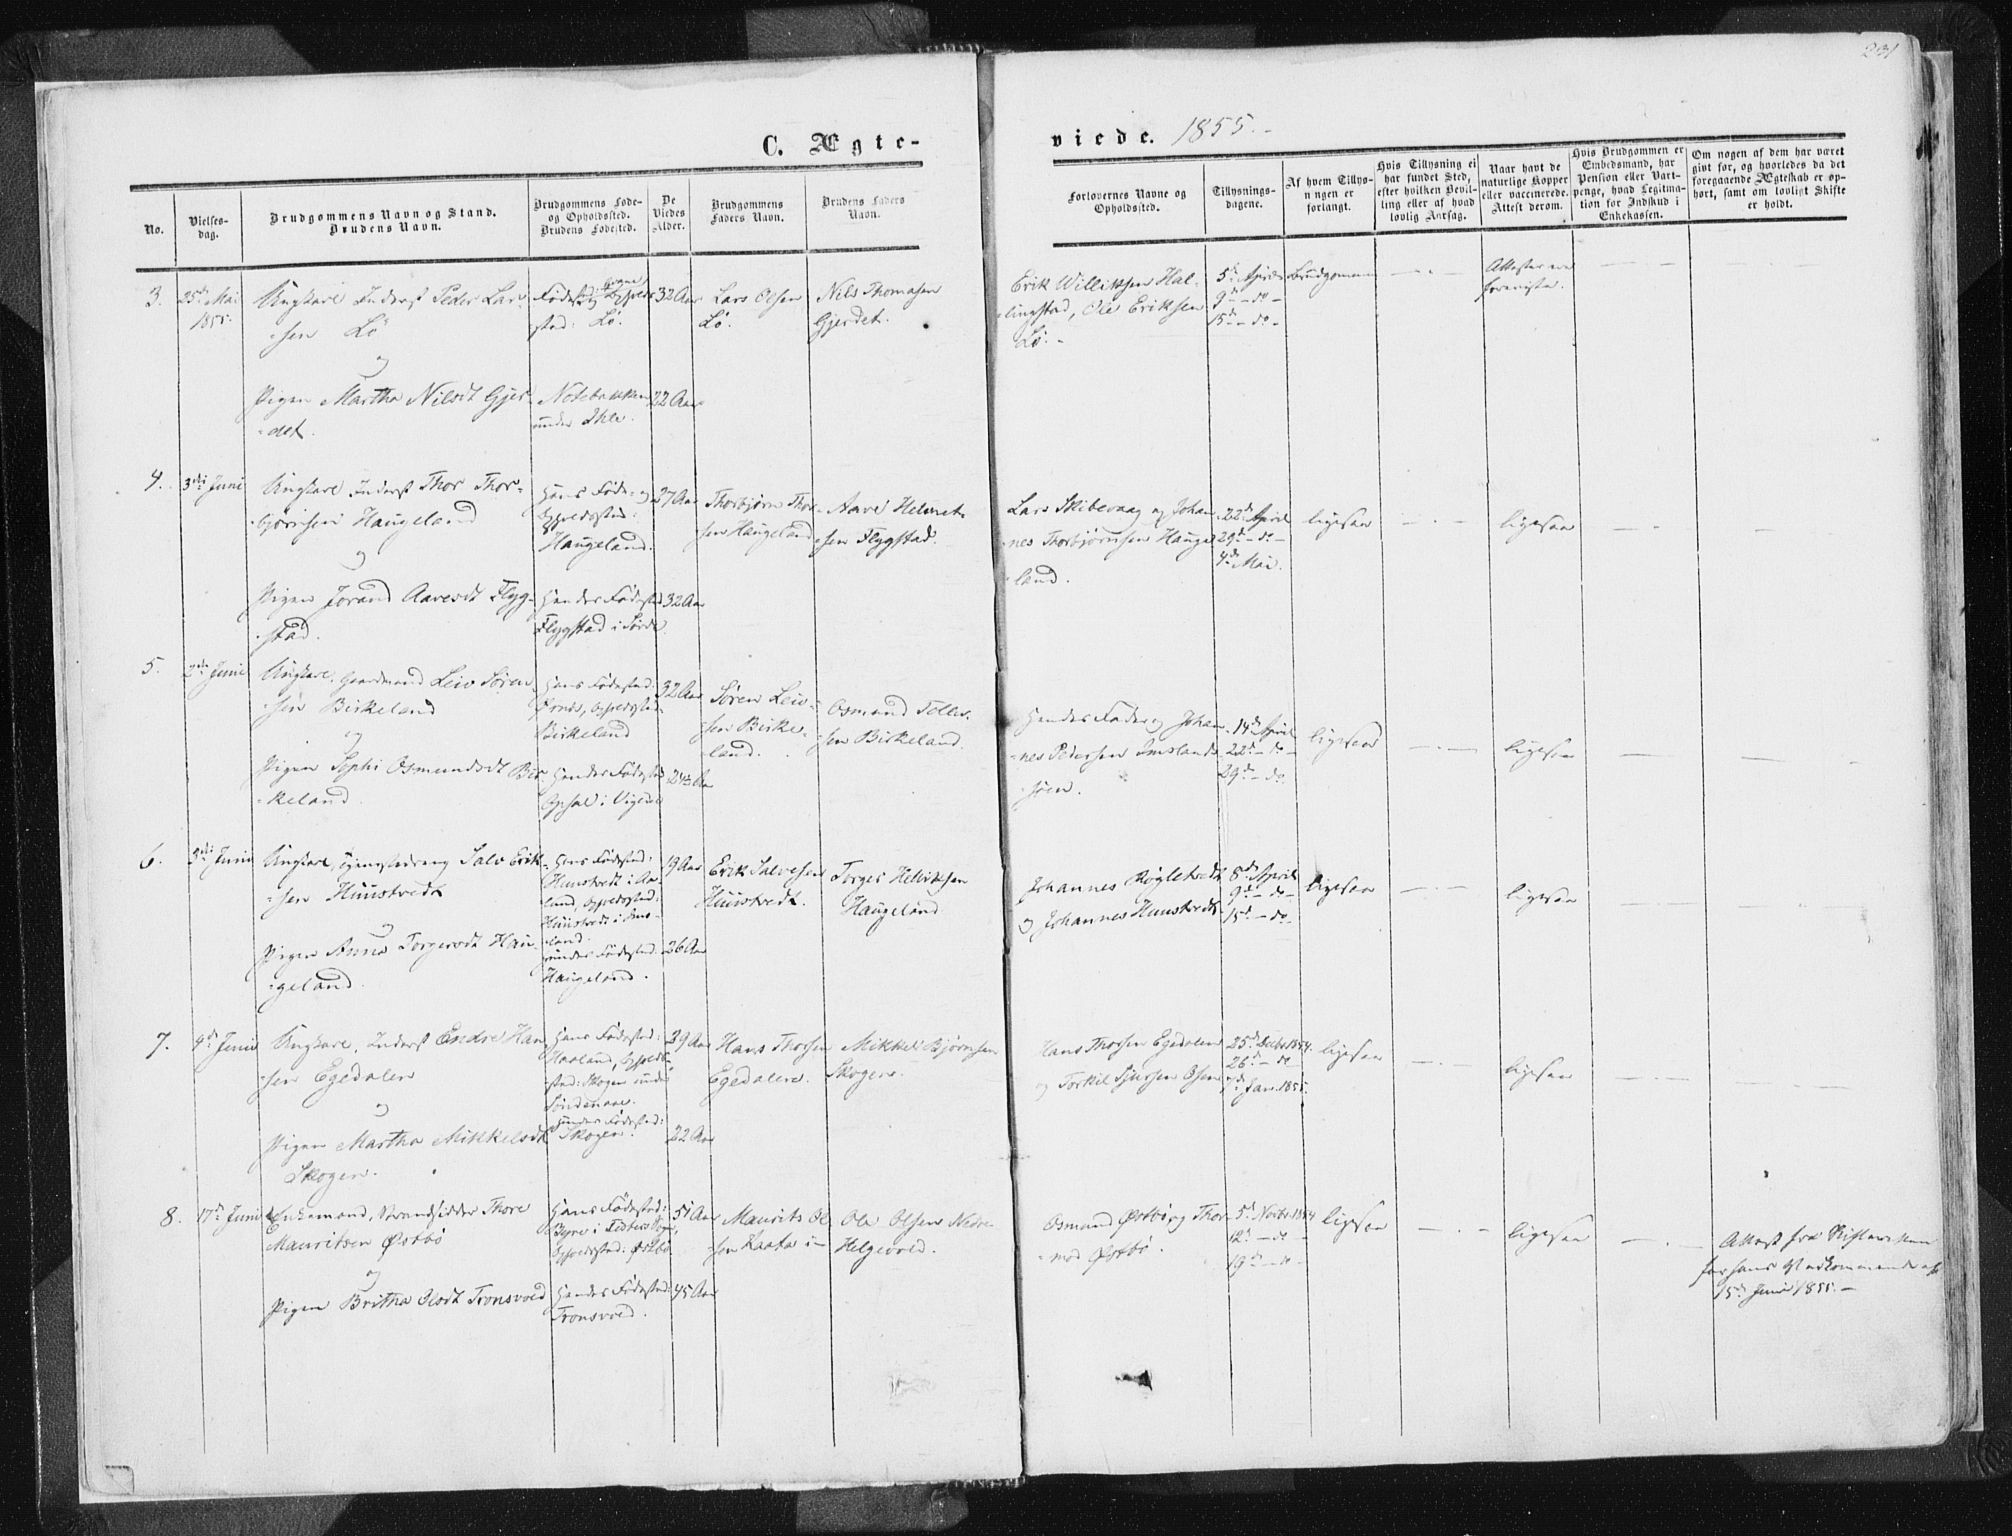 231
C. Ægte-
viede. 1855.-
No.
Vielses-
dag.
Brudgommens Navn og Stand.
Brudens Navn.
Brudgommens Føde-
og Opholdssted.
Brudens Fødested.
De
Viedes
Alder.
Brudgommens
Faders Navn.
Brudens Faders
Navn.
Forlovernes Navne og
Opholdssted.
Tillysnings-
dagene.
Af hvem Tillys-
ningen er
forlangt.
Hvis Tillysning ei
har fundet Sted,
efter hvilken Bevil-
ling eller af hvad
lovlig Aarsag.
Naar havt de
naturlige Kopper
eller vaccinerede.
Attest derom.
Hvis Brudgommen er
Embedsmand, har
Pension eller Vart-
penge, hvad Legitima-
tion for Indskud i
Enkekassen.
Om nogen af dem har været
givt før, og hvorledes da det
foregaaende Ægteskab er op-
hørt, samt om lovligt Skifte
er holdt.
3.
25de Mai
1855.
Ungkarl Inderst Peder Lar-
-sen Lø
og
Pigen Martha Nilsdt Gjer-
-det.
Fødested og Opholds-
sted: Lø.
Notebakken
under Ihle.
32 Aar
22 Aar
Lars Olsen
Lø.
Nils Thomasen
Gjerdet.
Erik Williksen Hal-
-lingstad, Ole Eriksen
Lø.-
5te April
9de - do -
15de - do -
Brudgommen
Attester ere
foreviste.
4.
3die Juni
Ungkarl Inderst Thor Thor-
-bjørnsen Haugeland
og
Pigen Jorand Aaresdt Flyg-
-stad.
Hans Føde- og
Opholdssted:
Haugeland.
Hendes Fødested
Flygstad i Førde
27 Aar
32 Aar
Thorbjørn Thor-
-sen Haugeland
Aare Helmik-
-sen Flygstad.
Lars Skibevaag og Johan-
-nes Thorbjørnsen Hauge-
-land.
22de April
29de - do -
4de Mai.
ligesaa
ligesaa
5.
2den Juni
Ungkarl, Gaardmand Leiv Søren-
-sen Birkeland
og
Pigen Sophi Osmundsdt Bir-
-keland
Hans Fødested:
Opholdssted:
Birkeland
Hendes Fødested
Opsal i Vigedal
32 Aar
Søren Leiv-
-sen Birke-
-land.
Osmund Tolles-
-sen Birkeland.
Hendes Fader og Johan-
-nes Pedersen Imslands-
-sjøen.
14de April
22de - do -
29de - do.
ligesaa
ligesaa
6.
3die Juni
Ungkarl, Tjenestedreng Salve Erik-
-sen Huustvedt
og
Pigen Anna Torgersdt Hau-
-geland.
Hans Fødested:
Huustvedt i
Opholdssted:
Huustvedt i Ims-
-land.
Hendes Fødested:
Haugeland.
19 Aar
26 Aar
Erik Salvesen
Huustvedt.
Torger Helviksen
Haugeland
Johannes Røgletvedt
og Johannes Huustvedt.
8de April
9de - do -
15de - do -
ligesaa
ligesaa
7.
4de Juni
Ungkarl, Inderst Endre Han-
-sen Egedalen
og
Pigen Martha Mikkelsdt
Skogen.
Hans Fødested:
Haaland, Opholds-
-sted: Skogen under
Søndenaae.
Hendes Fødested:
Skogen.
29 Aar
22 Aar
Hans Thorsen
Egedalen.
Mikkel Bjørnsen
Skogen.
Hans Thorsen Egedalen
og Torkil Sjursen Osen
25de Decbr 1854.
26de - do
7de Jan. 1855.
ligesaa
ligesaa
8.
17de Juni
Enkemand, Strandsidder Thore
Mauritsen Østbø
og
Pigen Britha Olsdt Tronsvold
Hans Fødested:
Opholdssted: Østbø.
Hendes Fødested:
Tronsvold.
51 Aar
45 Aar
Maurits Ol-
-sen
Ole Olsen Nedre-
Helgevold.
Osmund Østbø og Thor-
-mod Østbø.
5te Novbr. 1854
12te - do -
19de - do -
ligesaa
ligesaa
Attest fra Skifteretten
for hans Vedkommende af
15de Juni 1855.-